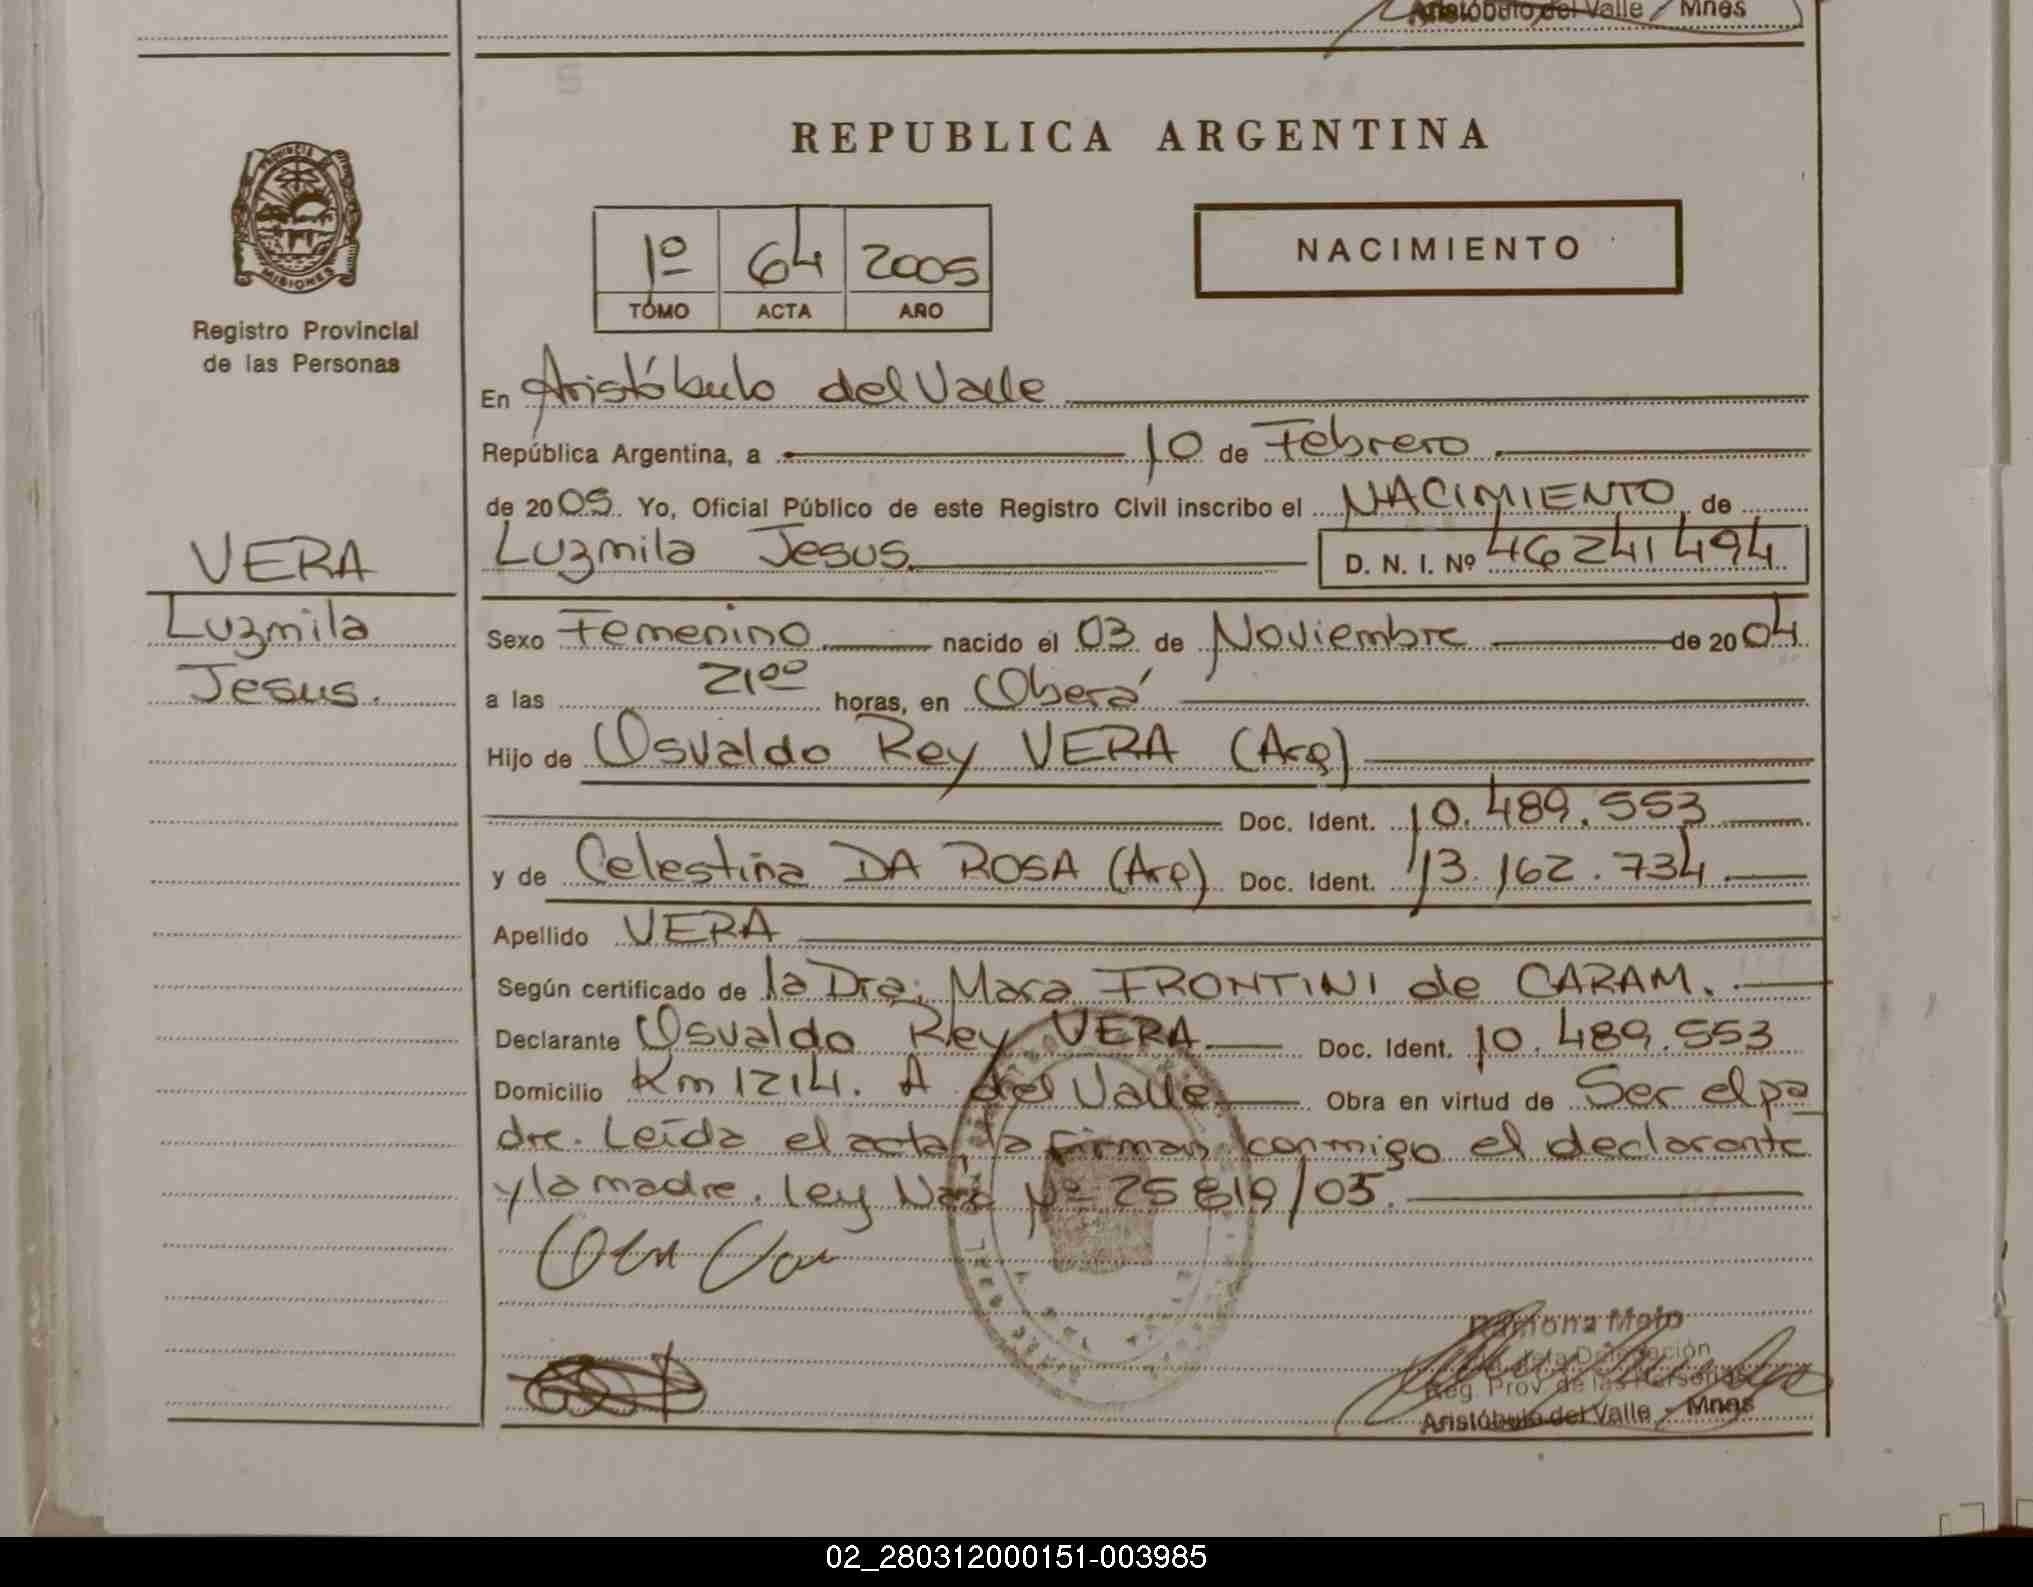 Aristóbulo del Valle / Mnes
REPUBLICA ARGENTINA
PROVINCIA DE
MISIONES
Registro Provincial
de las Personas
1º 64 2005
TOMO ACTA AÑO
NACIMIENTO
En Aristóbulo del Valle
República Argentina, a 10 de Febrero
de 2005. Yo, Oficial Público de este Registro Civil inscribo el NACIMIENTO de
Luzmila Jesus D. N. I. Nº 46241494
VERA
Luzmila
Jesus.
Sexo Femenino nacido el 03 de Noviembre de 2004
a las 21ºº horas, en Oberá
Hijo de Osvaldo Rey VERA (Arg)
Doc. Ident. 10.489.553
y de Celestina DA ROSA (Arg) Doc. Ident. 13.162.734
Apellido VERA
Según certificado de la Dra. Mara FRONTINI de CARAM.
Declarante Osvaldo Rey VERA Doc. Ident. 10.489.553
Domicilio Km 1214. A del Valle Obra en virtud de Ser el pa
dre. Leída el acta, la firman conmigo el declarante
y la madre. Ley Nac Nº 25819/03.
Ramona
de la Delegación
Reg. Prov. de las Personas
Aristóbulo del Valle - Mnes
02_280312000151-003985